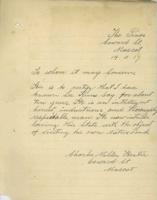 The Pines
Coward St
Mascot
19.2.17
To whom it may Concern
This is to certify that I have
known Sue Fong for about
ten years. He is an intelligent
honest, industrious and thoroughly
respectable man. He now intends
leaving this State with the object
of visiting his own Native land
Charles
Coward St
Mascot